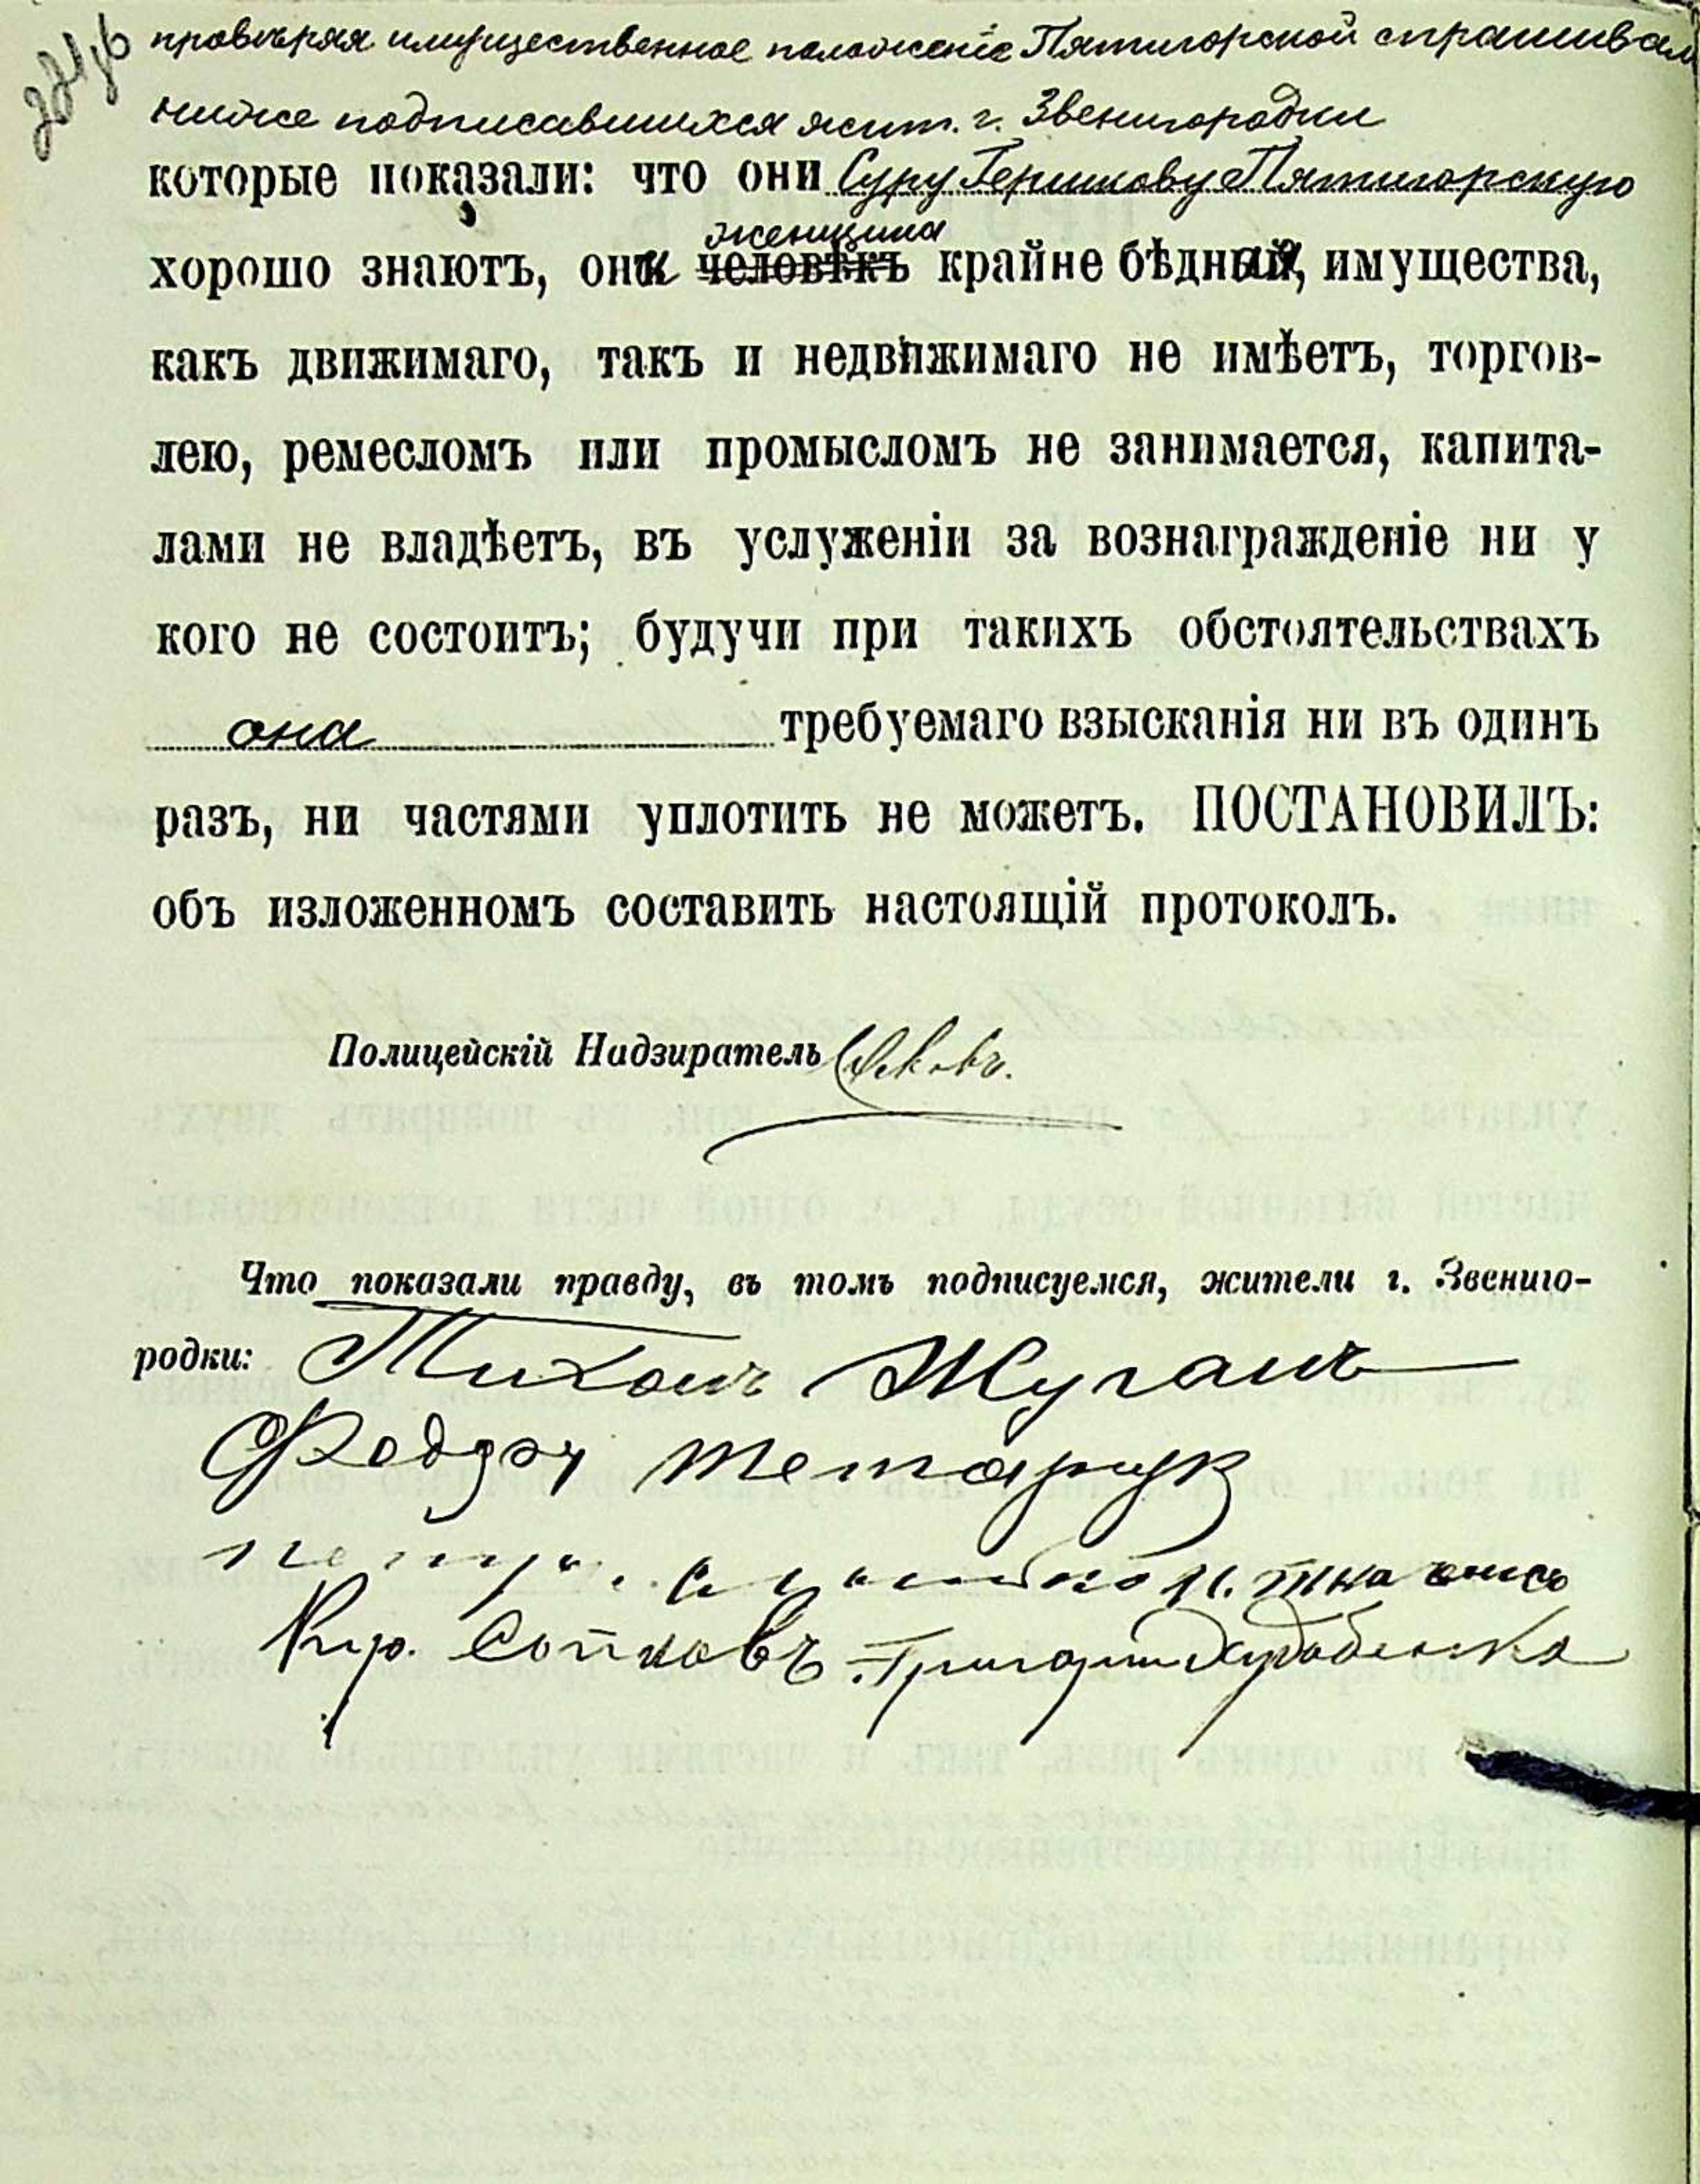 провѣряя имущественное положеніе Пятигорской спрашивал
ниже подписавшихся жит. г. Звенигородки
которые показали: что они Суру Гершкову Пятигорскую
женщина
хорошо знаютъ, она человѣкъ крайне бѣдная, имущества,
какъ движимаго, такъ и недвижимаго не имѣетъ, торгов-
лею, ремесломъ или промысломъ не занимается, капита-
лами не владѣетъ, въ услуженіи за вознагражденіе ни у
кого не состоитъ; будучи при такихъ обстоятельствахъ
она требуемаго взысканія ни въ одинъ
разъ, ни частями уплотить не можетъ. ПОСТАНОВИЛЪ:
объ изложенномъ составить настоящій протоколъ.
Полицейскій Надзиратель
Что показали правду, въ томъ подписуемся, жители г. Звениго-
родки: Тихонъ Жуганъ
Федор
Кир. Сотковъ Григорий